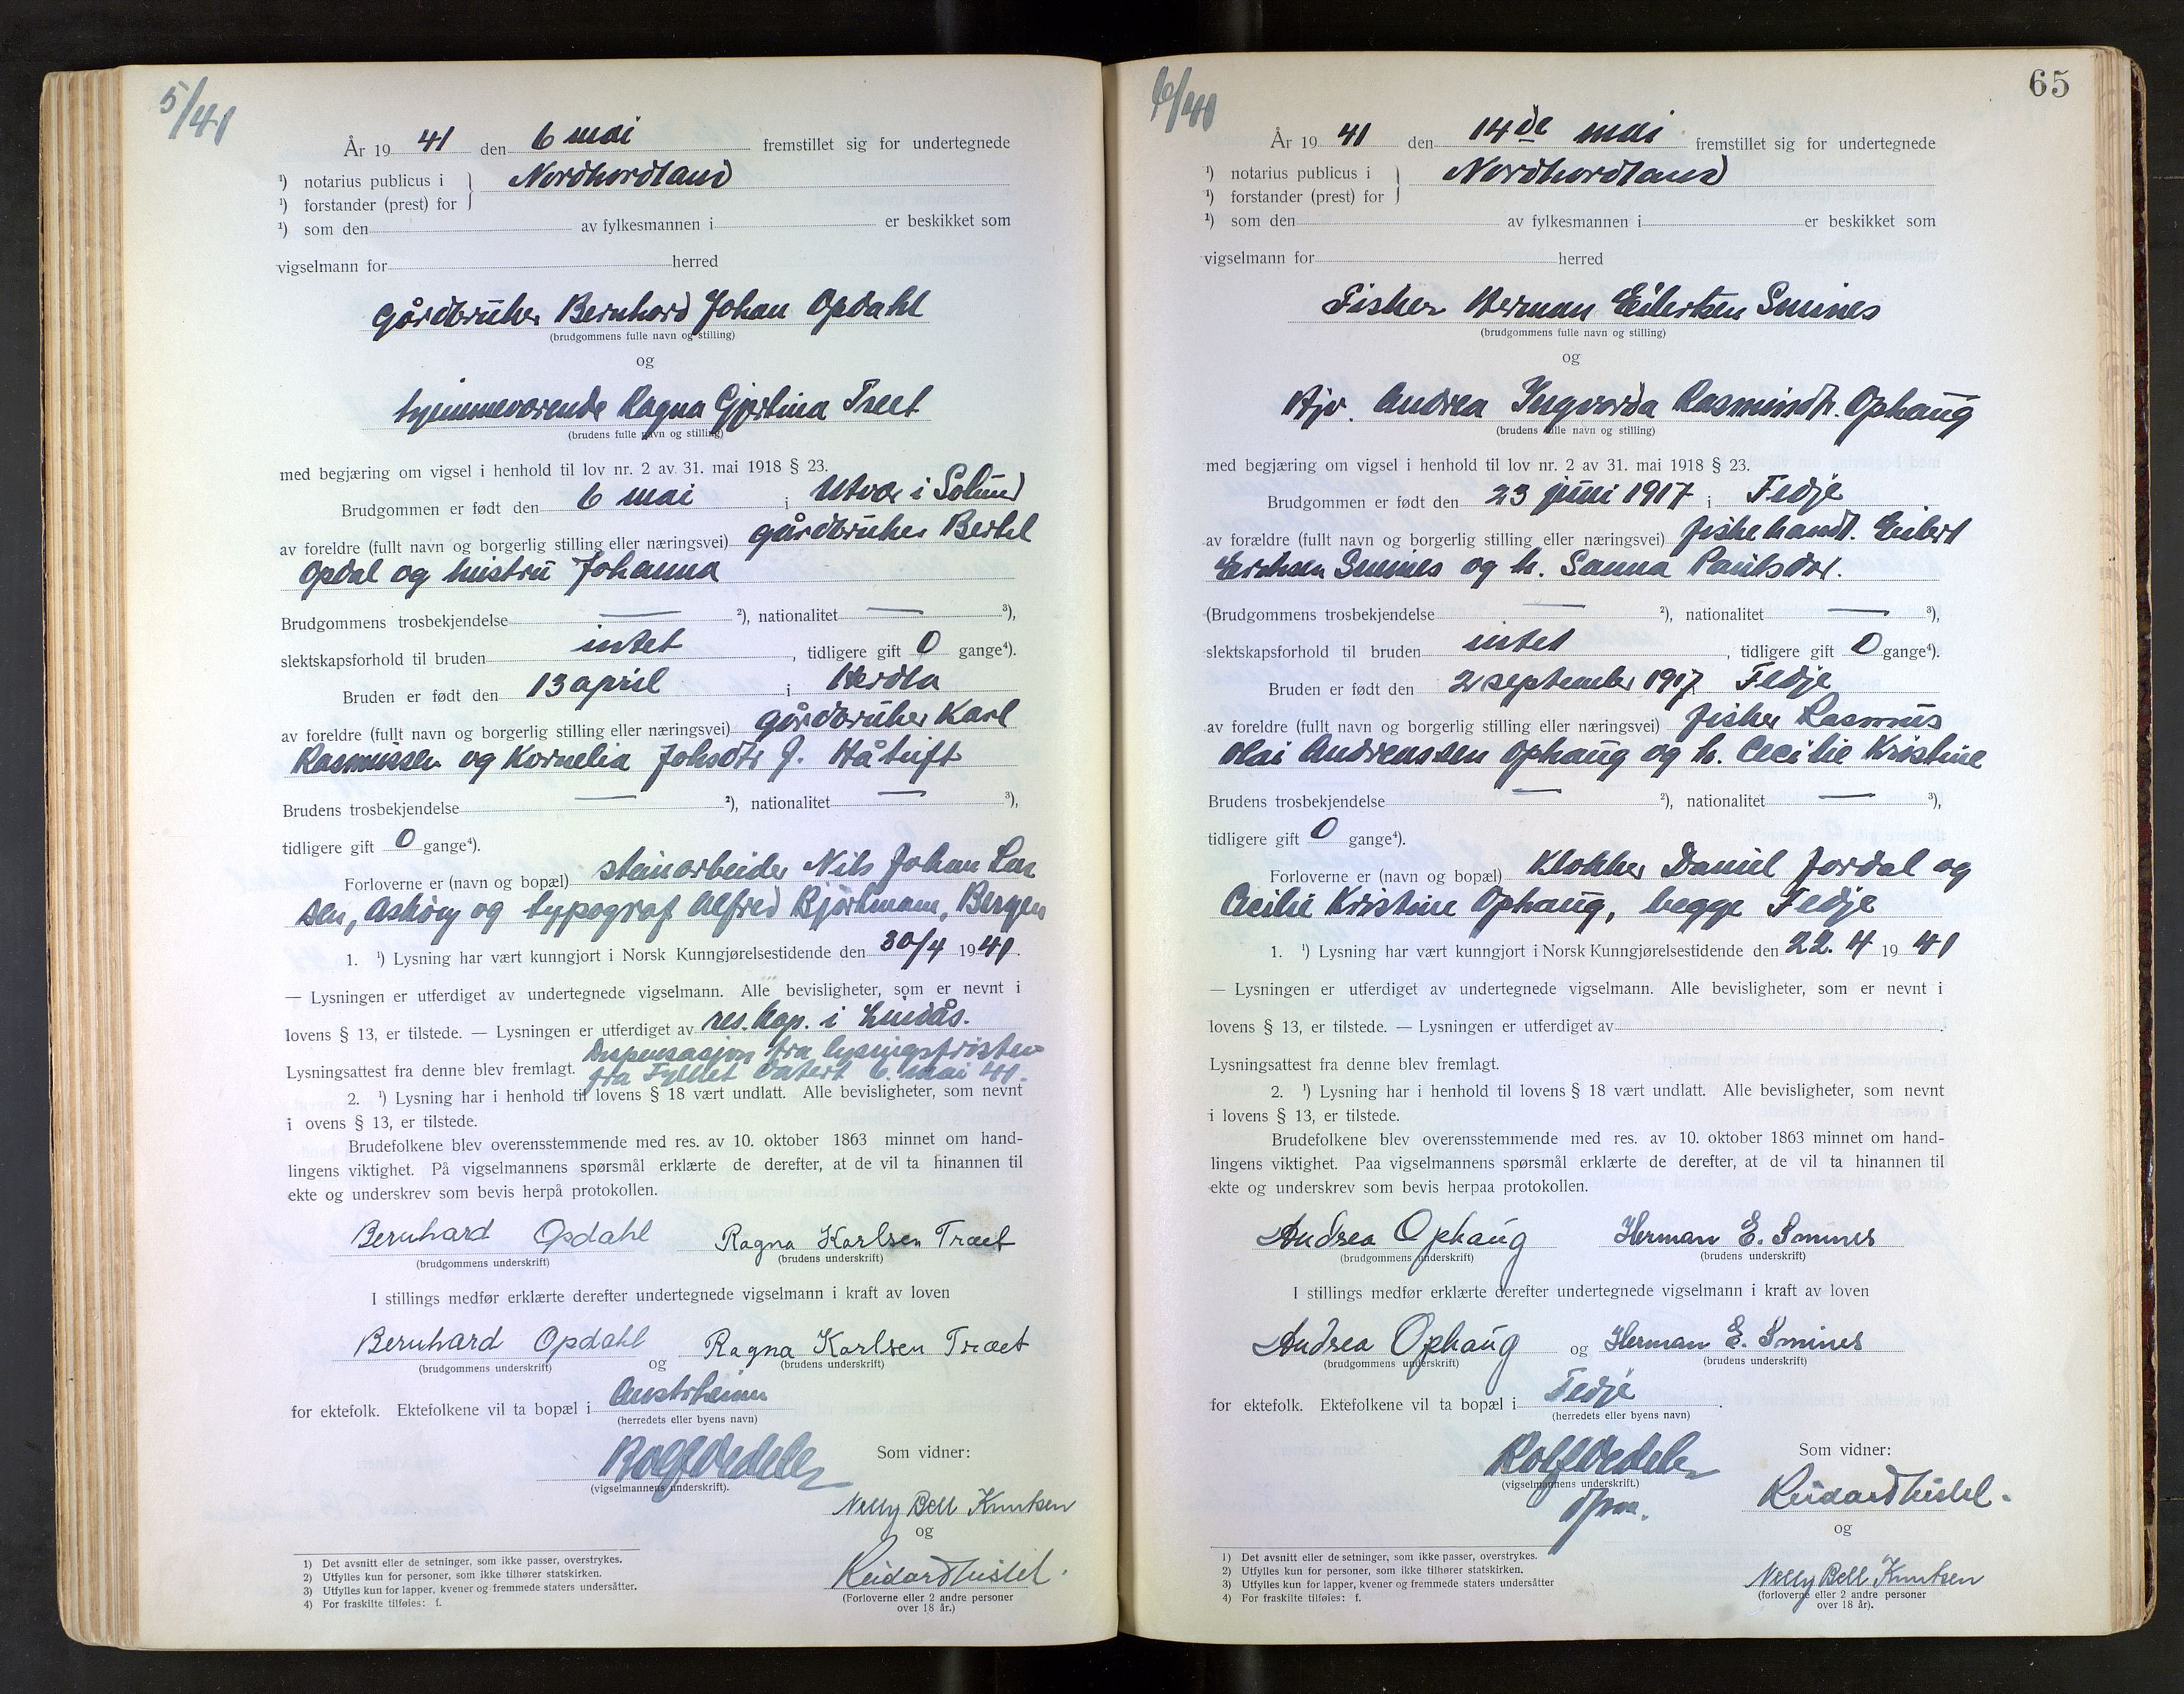 5/41
År 19 41 den 6 mai fremstillet sig for undertegnede
¹) notarius publicus i } Nordhordland
¹) forstander (prest) for
¹) som den av fylkesmannen i er beskikket som
vigselmann for herred
Gårdbruker Bernhard Johan Opdahl
(brudgommens fulle navn og stilling)
og
hjemmeværende Ragna Gjertina Træet
(brudens fulle navn og stilling)
med begjæring om vigsel i henhold til lov nr. 2 av 31. mai 1918 § 23.
Brudgommen er født den 6 mai i Utvær i Solund
av foreldre (fullt navn og borgerlig stilling eller næringsvei) gårdbruker Bertel
Opdal og hustru Johanna
Brudgommens trosbekjendelse — ²), nationalitet — ³),
slektskapsforhold til bruden intet, tidligere gift 0 gange⁴).
Bruden er født den 13 april i Herdla
av foreldre (fullt navn og borgerlig stilling eller næringsvei) gårdbruker Karl
Rasmussen og Kornelia Johsdtr f. Håtuft
Brudens trosbekjendelse — ²), nationalitet — ³),
tidligere gift 0 gange⁴).
Forloverne er (navn og bopæl) steinarbeider Nils Johan Lar
sen, Askøy og typograf Alfred Bjørkmann, Bergen
1. ¹) Lysning har vært kunngjort i Norsk Kunngjørelsestidende den 30/4 1941.
— Lysningen er utferdiget av undertegnede vigselmann. Alle bevisligheter, som er nevnt i
lovens § 13, er tilstede. — Lysningen er utferdiget av res. kap. i Lindås.
Dispensasjon fra lysingsfristen
Lysningsattest fra denne blev fremlagt. fra Fylket datert 6. mai 41.
2. ¹) Lysning har i henhold til lovens § 18 vært undlatt. Alle bevisligheter, som nevnt
i ovens § 13, er tilstede.
Brudefolkene blev overensstemmende med res. av 10. oktober 1863 minnet om hand-
lingens viktighet. På vigselmannens spørsmål erklærte de derefter, at de vil ta hinannen til
ekte og underskrev som bevis herpå protokollen.
Bernhard Opdahl Ragna Karlsen Træet
(brudgommens underskrift) (brudens underskrift)
I stillings medfør erklærte derefter undertegnede vigselmann i kraft av loven
Bernhard Opdahl og Ragna Karlsen Træet
(brudgommens underskrift) (brudens underskrift)
for ektefolk. Ektefolkene vil ta bopæl i Austrheim
(herredets eller byens navn)
Rolf Vedeler Som vidner:
(vigselmannens underskrift).
Nelly Bell Knutsen
og
Reidar Thislel.
(Forloverne eller 2 andre personer
over 18 år.)
1) Det avsnitt eller de setninger, som ikke passer, overstrykes.
2) Utfylles kun for personer, som ikke tilhører statskirken.
3) Utfylles kun for lapper, kvener og fremmede staters undersåtter.
4) For fraskilte tilføies: f.
6/41
65
År 19 41 den 14de mai fremstillet sig for undertegnede
¹) notarius publicus i } Nordhordland
¹) forstander (prest) for
¹) som den av fylkesmannen i er beskikket som
vigselmann for herred
Fisker Herman Eilertsen Smines
(brudgommens fulle navn og stilling)
og
Hjv. Andrea Ingvarda Rasmusdtr. Ophaug
(brudens fulle navn og stilling)
med begjæring om vigsel i henhold til lov nr. 2 av 31. mai 1918 § 23.
Brudgommen er født den 23 juni 1917 i Fedje
av forældre (fullt navn og borgerlig stilling eller næringsvei) fiskehandl. Eilert
Eriksen Smines og h. Sanna Paulsdtr.
(Brudgommens trosbekjendelse — ²), nationalitet — ³),
slektskapsforhold til bruden intet, tidligere gift 0 gange⁴).
Bruden er født den 2 september 1917 Fedje
av foreldre (fullt navn og borgerlig stilling eller næringsvei) fisker Rasmus
Olai Andreassen Ophaug og h. Cecilie Kristine
Brudens trosbekjendelse — ²), nationalitet — ³),
tidligere gift 0 gange⁴).
Forloverne er (navn og bopæl) Klokker Daniel Jordal og
Cecilie Kristine Ophaug, begge Fedje
1. ¹) Lysning har vært kunngjort i Norsk Kunngjørelsestidende den 22. 4 19 41
— Lysningen er utferdiget av undertegnede vigselmann. Alle bevisligheter, som er nevnt i
lovens § 13, er tilstede. — Lysningen er utferdiget av
Lysningsattest fra denne blev fremlagt.
2. ¹) Lysning har i henhold til lovens § 18 vært undlatt. Alle bevisligheter, som nevnt
i lovens § 13, er tilstede.
Brudefolkene blev overensstemmende med res. av 10. oktober 1863 minnet om hand-
lingens viktighet. Paa vigselmannens spørsmål erklærte de derefter, at de vil ta hinannen til
ekte og underskrev som bevis herpaa protokollen.
Andrea Ophaug Herman E. Smines
(brudgommens underskrift) (brudens underskrift)
I stillings medfør erklærte derefter undertegnede vigselmann i kraft av loven
Andrea Ophaug og Herman E. Smines
(brudgommens underskrift) (brudens underskrift)
for ektefolk. Ektefolkene vil ta bopæl i Fedje.
(herredets eller byens navn)
Rolf Vedeler Som vidner:
(vigselmannens underskrift.)
Reidar Thislel.
og
Nelly Bell Knutsen
(forloverne eller 2 andre personer
over 18 år).
1) Det avsnitt eller de setninger, som ikke passer, overstrykes.
2) Utfylles kun for personer, som ikke tilhører statskirken.
3) Utfylles kun for lapper, kvener og fremmede staters undersåtter
4) For fraskilte tilføies: f.